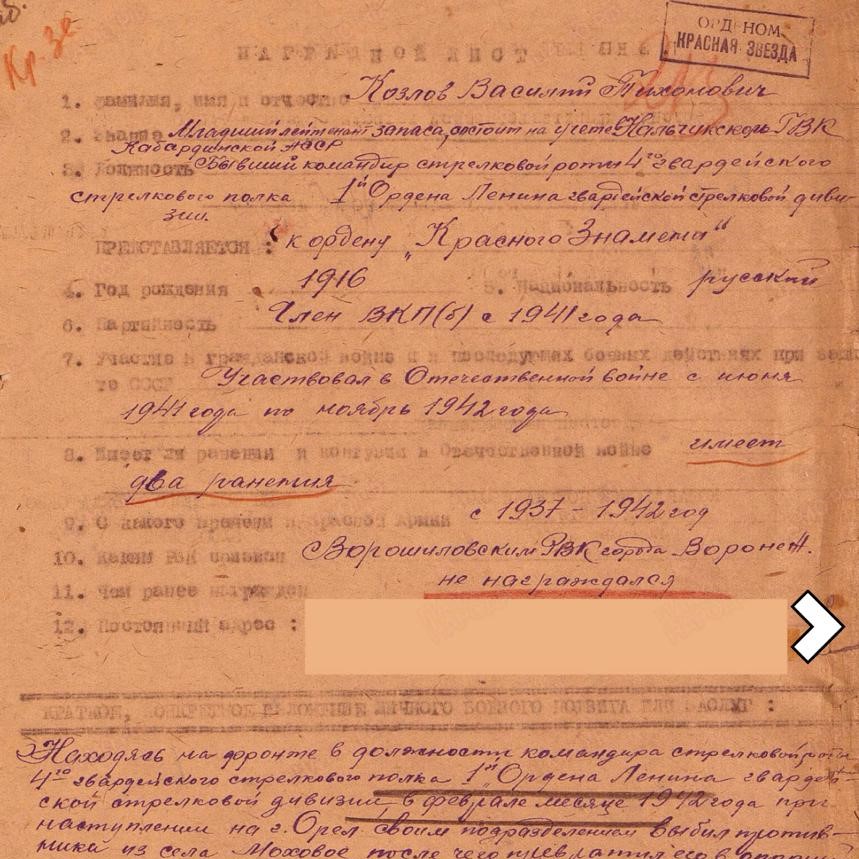 Кр. Зв
ОРДЕНОМ
КРАСНАЯ ЗВЕЗДА
НАГРАДНОЙ ЛИСТ
1. Фамилия, имя и отчество Козлов Василий Тихонович
2. Звание Младший лейтенант запаса, состоит на учете Нальчикского ГВК
Кабардинской АССР
3. Должность Бывший командир стрелковой роты 4го гвардейского
стрелкового полка 1й Ордена Ленина гвардейской стрелковой диви-
зии.
ПРЕДСТАВЛЯЕТСЯ : к ордену „Красного Знамени"
4. Год рождения 1916 5. Национальность русский
6. Партийность Член ВКП(б) с 1941 года
7. Участие в гражданской войне и в последующих боевых действиях при защи
те СССР Участвовал в Отечественной войне с июня
1941 года по ноябрь 1942 года
8. Имеет ли ранения и контузии в Отечественной войне имеет
два ранения
9. С какого времени в Красной Армии с 1937 - 1942 год
10. Каким РВК призван Ворошиловским РВК города Воронеж.
11. Чем ранее награжден не награждался
12. Постоянный адрес :
КРАТКОЕ, КОНКРЕТНОЕ ИЗЛОЖЕНИЕ ЛИЧНОГО БОЕВОГО ПОДВИГА ИЛИ ЗАСЛУГ :
Находясь на фронте в должности командира стрелковой роты
4го гвардейского стрелкового полка 1й Ордена Ленина гвардей-
ской стрелковой дивизии, в феврале месяце 1942 года при
наступлении на г. Орел своим подразделением выбил против-
ника из села Моховое после чего превратил его в опорный